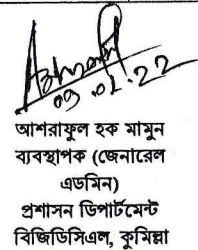 09.01.22
আশরাফুল হক মামুন
ব্যবস্থাপক (জেনারেল
এডমিন)
প্রশাসন ডিপার্টমেন্ট
বিজিডিসিএল, কুমিল্লা